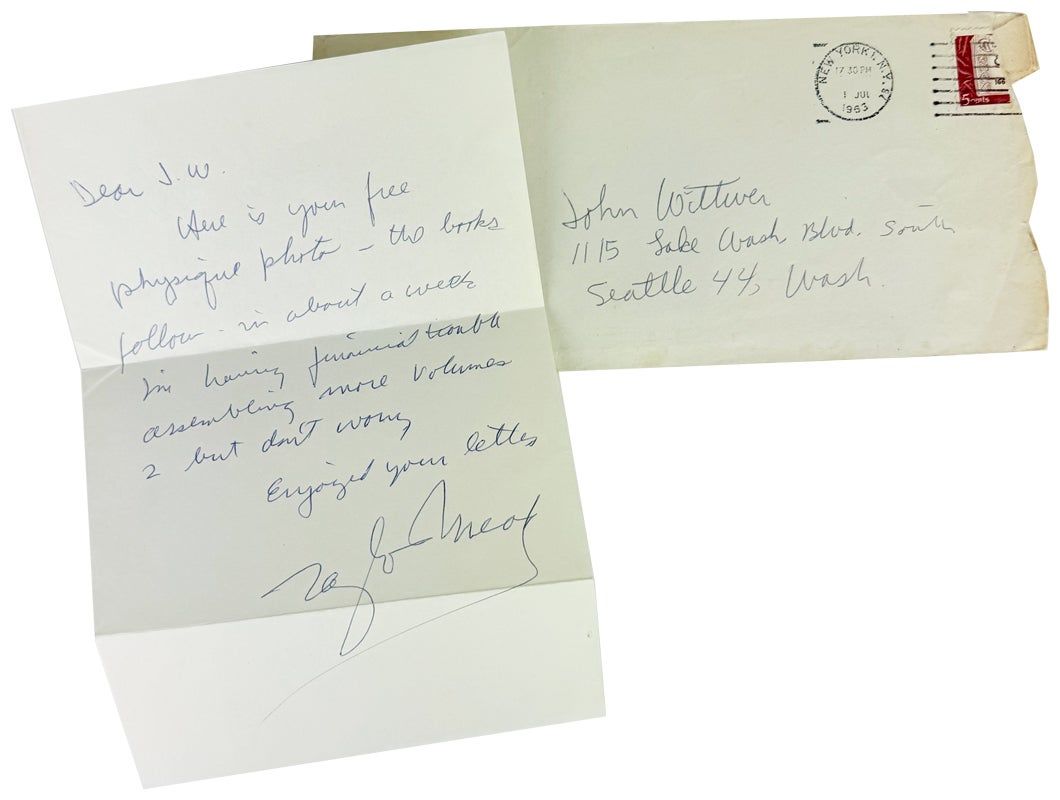 Dear J.W.
Here is your free
physique photo – the books
follow – in about a week
I'm having financial trouble
assembling more volumes
2 but don't worry
Enjoyed your letter
Taylor Mead
NEW YORK 1, N.Y.
7 30 PM
1 JUL
1963
5 cents
John Wittwer
1115 Lake Wash. Blvd. South
Seattle 44, Wash.